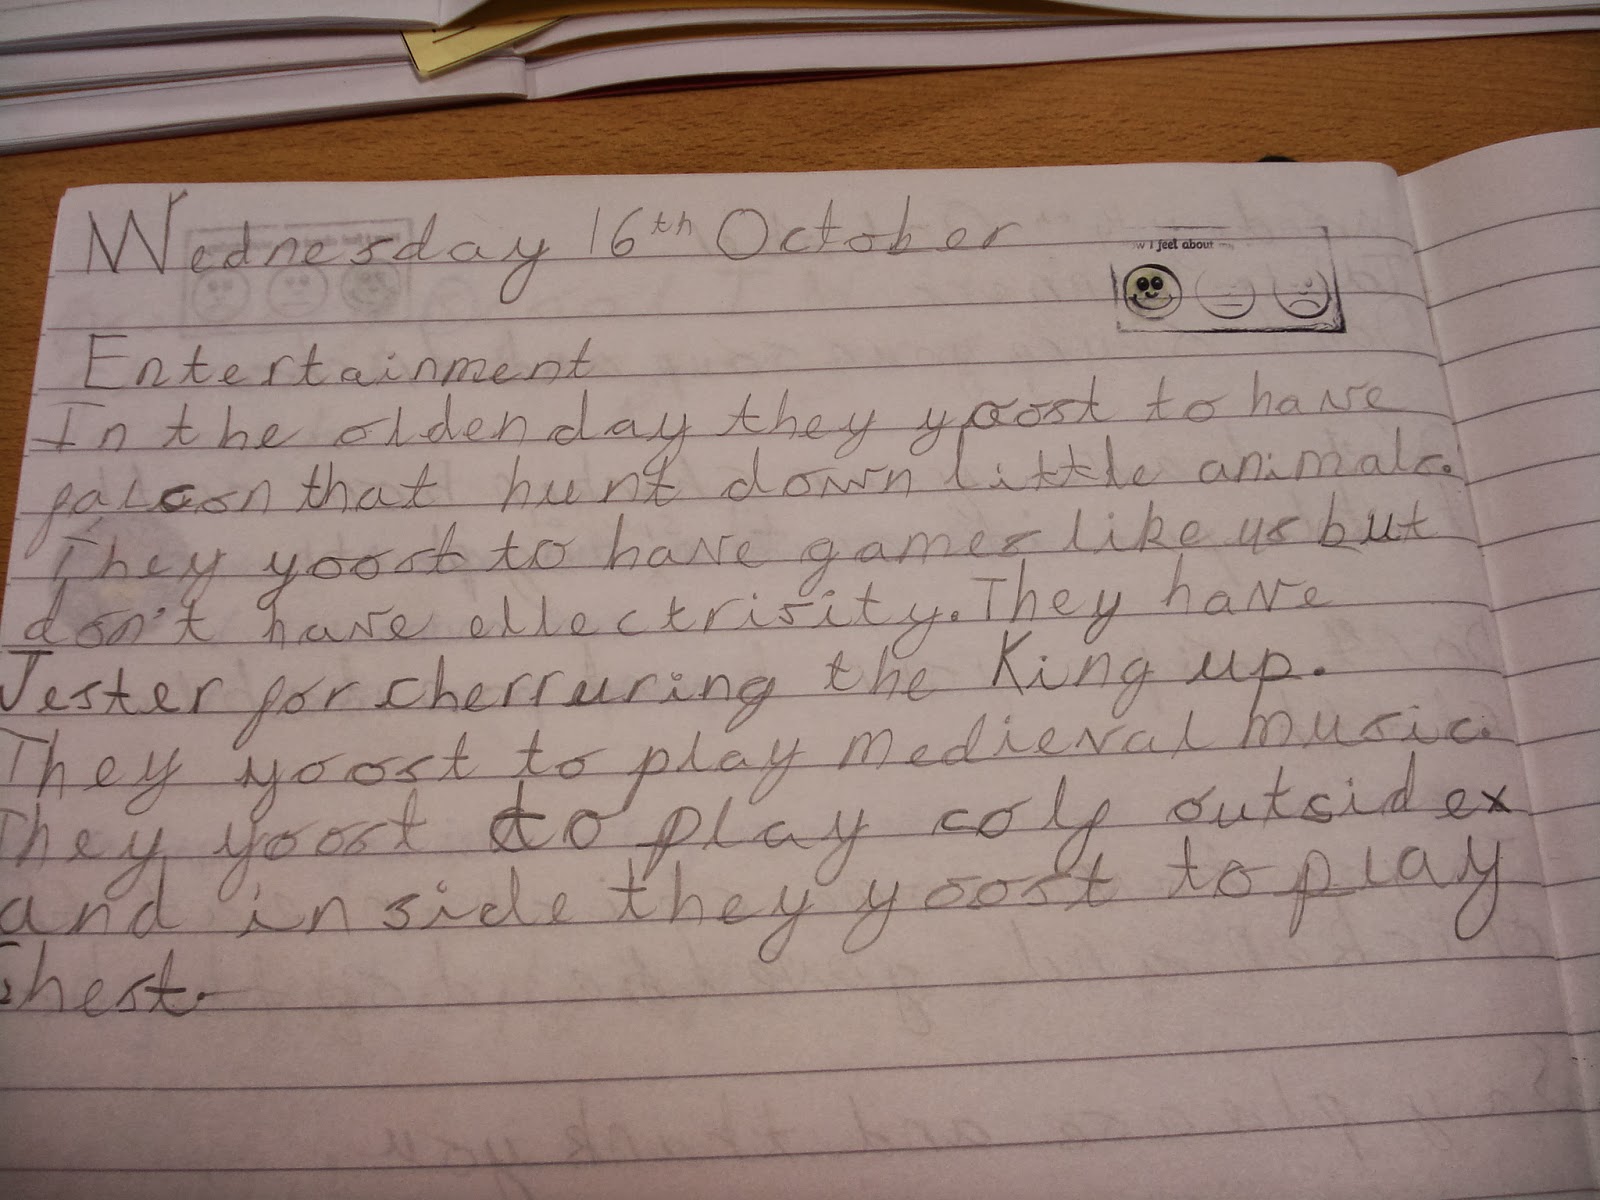 Wednesday 16th October
w I feel about
Entertainment
In the olden day they yoost to have
falcon that hunt down little animals.
They yoost to have games like us but
don't have ellectrisity. They have
Jester for cherruring the King up.
They yoost to play medieval music.
They yoost to play colf outsidex
and inside they yoost to play
chest.